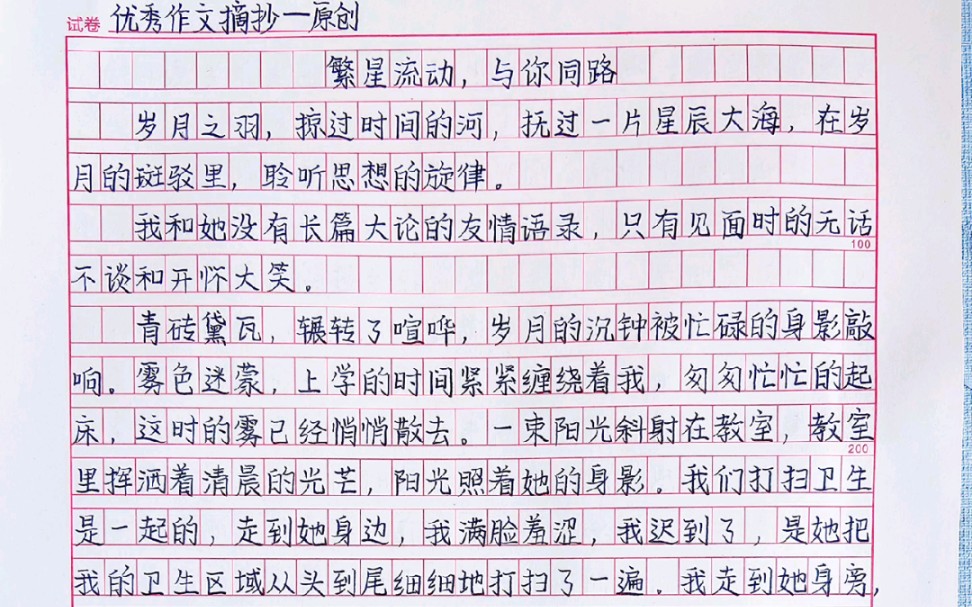 试卷 优秀作文摘抄一原创
繁星流动，与你同路
岁月之羽，掠过时间的河，抚过一片星辰大海，在岁
月的斑驳里，聆听思想的旋律。
我和她没有长篇大论的友情语录，只有见面时的无话
100
不谈和开怀大笑。
青砖黛瓦，辗转了喧哗，岁月的沉钟被忙碌的身影敲
响。雾色迷蒙，上学的时间紧紧缠绕着我，匆匆忙忙的起
床，这时的雾已经悄悄散去。一束阳光斜射在教室，教室
200
里挥洒着清晨的光芒，阳光照着她的身影。我们打扫卫生
是一起的，走到她身边，我满脸羞涩，我迟到了，是她把
我的卫生区域从头到尾细细地打扫了一遍。我走到她身旁，